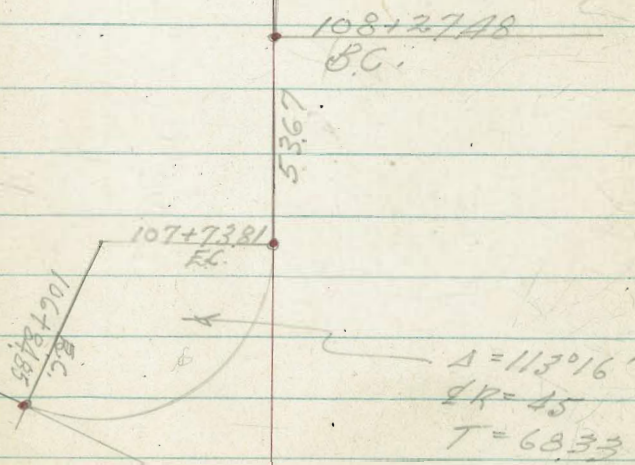 108+27.48
B.C.
53.67
107+73.81
E.C.
106+84.85
B.C.
Δ = 113°16'
℄R = 45
T = 68.33